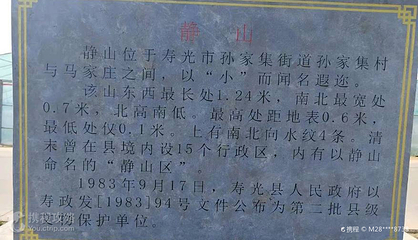 静 山
静山位于寿光市孙家集街道孙家集村
与马家庄之间，以“小”而闻名遐迩。
该山东西最长处1.24米，南北最宽处
0.7米，北高南低。最高处距地表0.6米，
最低处仅0.1米。上有南北向水纹4条。清
末曾在县境内设15个行政区，内有以静山
命名的“静山区”。
1983年9月17日，寿光县人民政府以
寿政发[1983]94号文件公布为第二批县级
文物保护单位。
携程攻略
携程 © M28****87